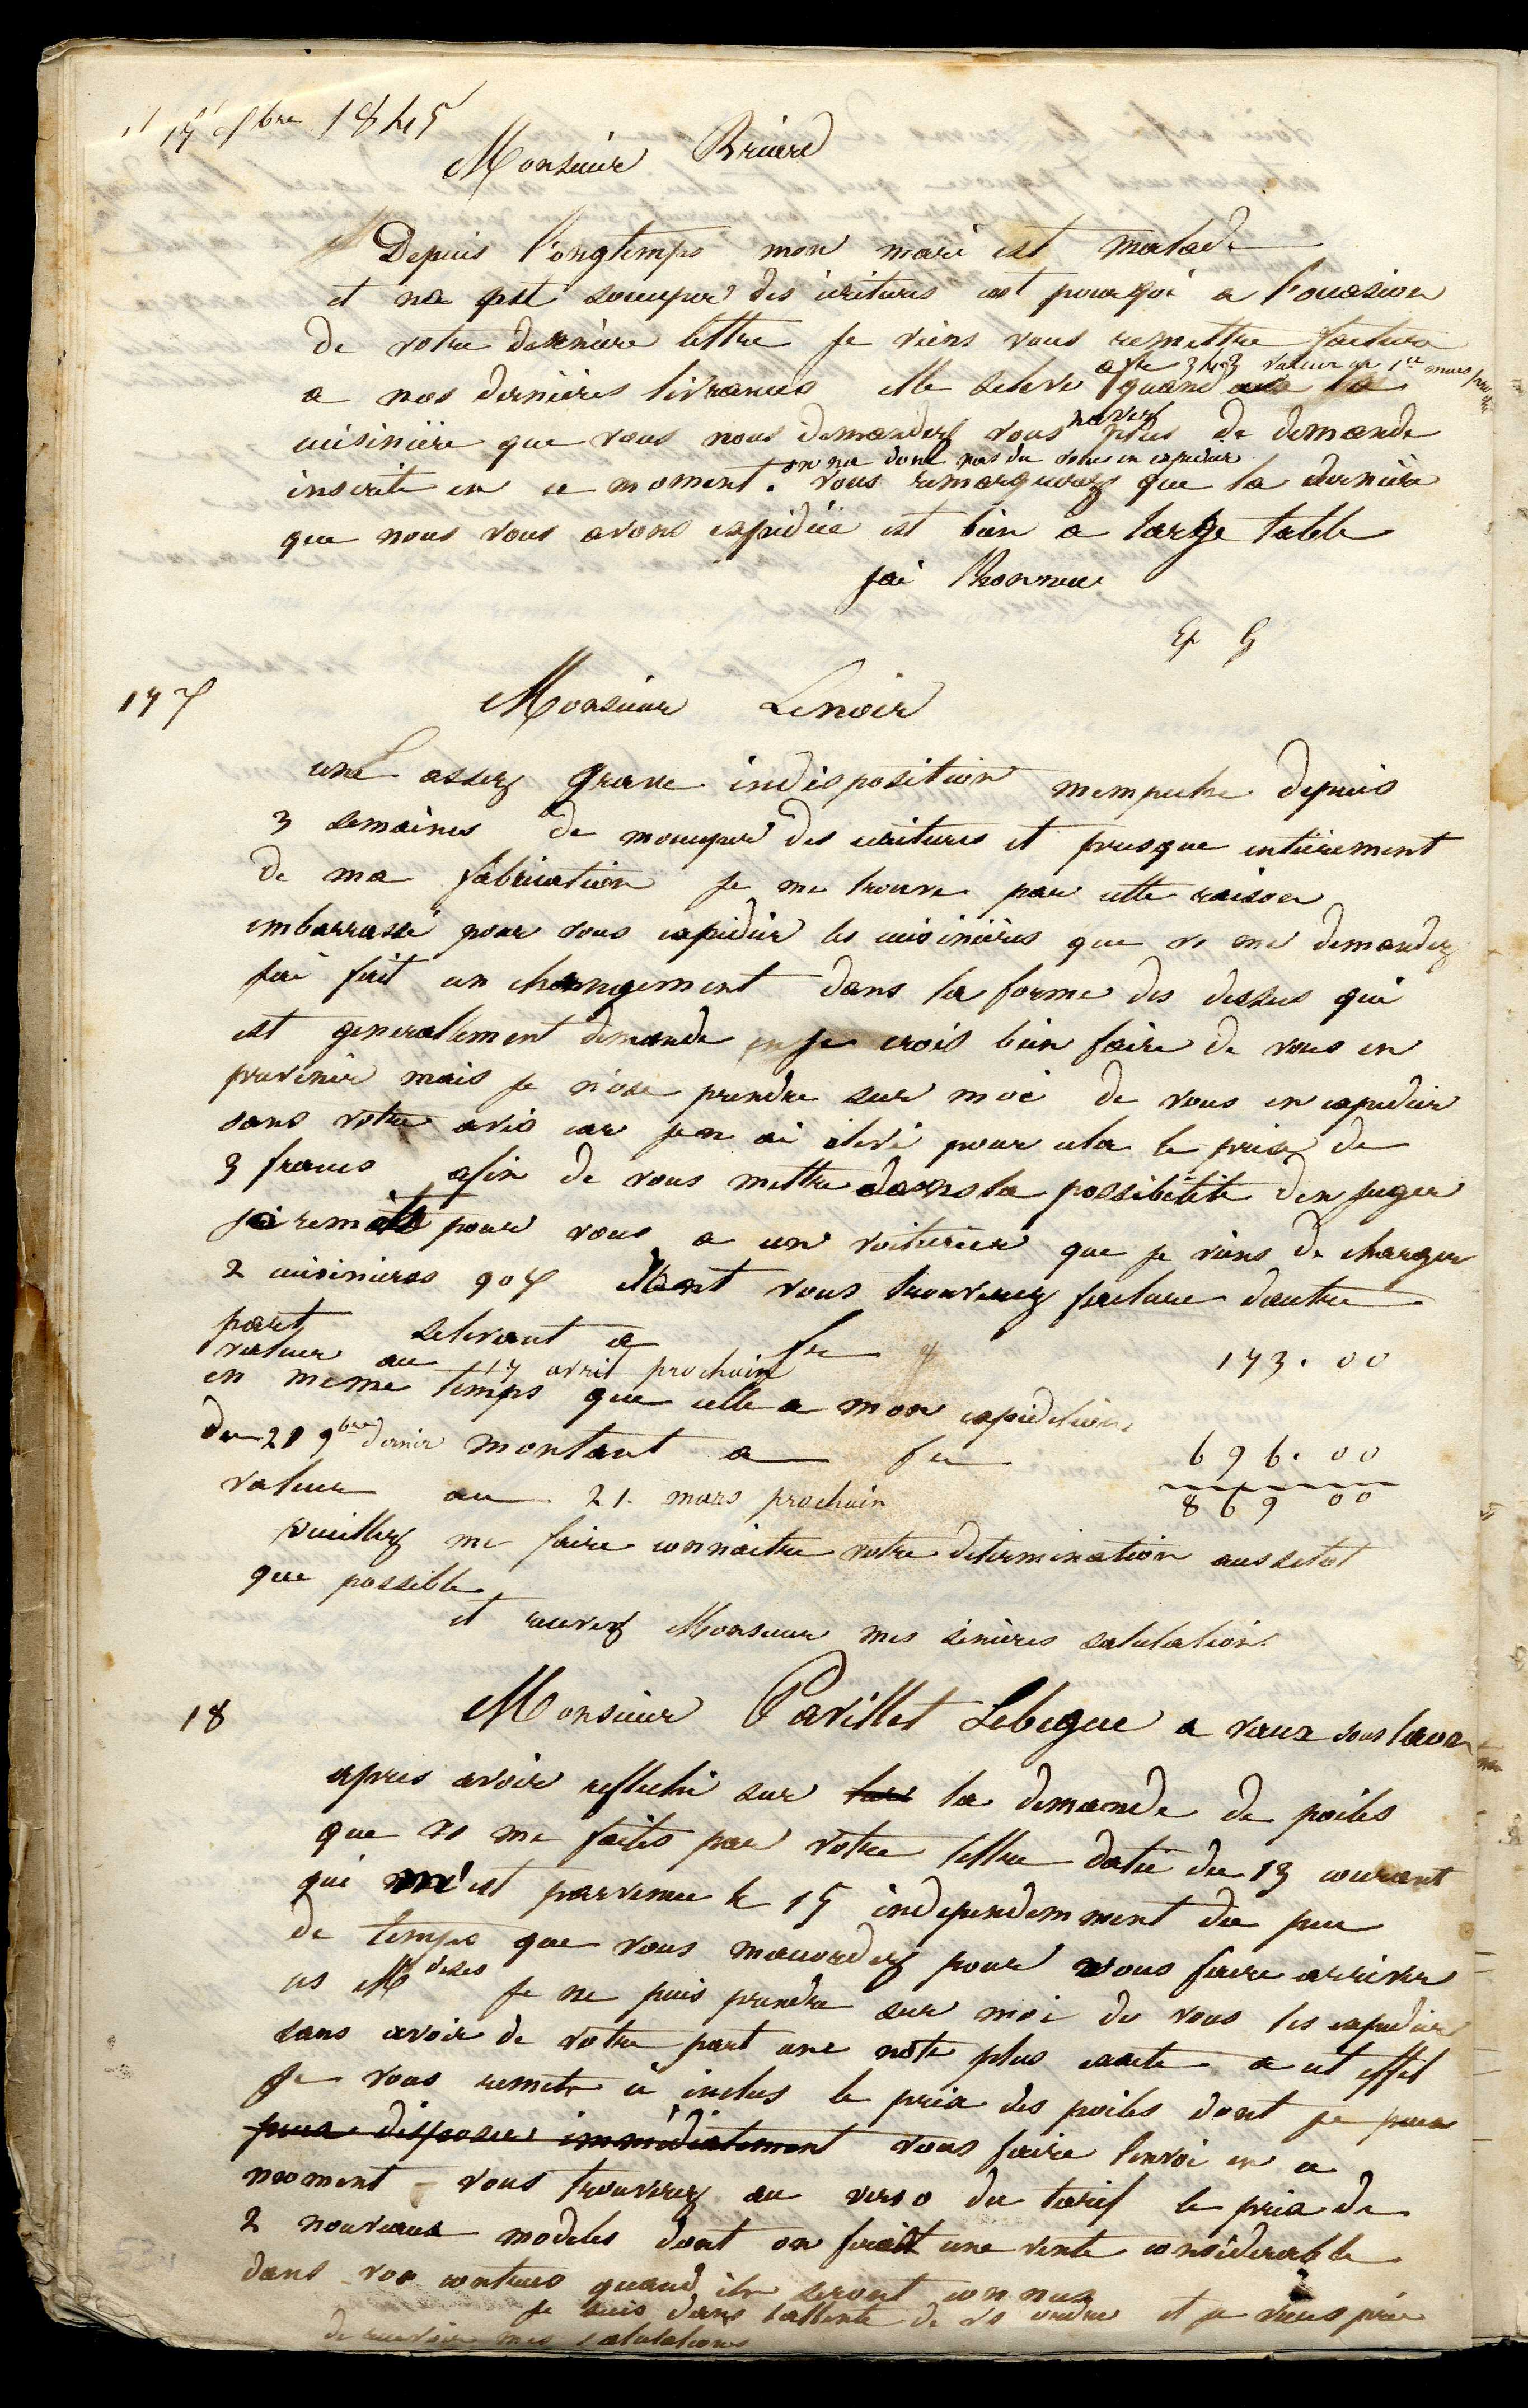 17 xbre 1845
Monsieur Briard
Depuis longtemps mon mari est malade
et ne peut soccuper des ecritures cest pourqoi a l'occasion
de votre dernière lettre je viens vous remettre facture
a nos dernières livrances elle seleve a fr 343 valeur au 1er mars
quand a la
cuisinière que vous nous demandez vous navez plus de demande
inscrite en ce moment. on ne doit pas du vous en expedier
vous remarquerez que la dernière
que nous vous avons expediée est bien a large table
jai lhonneur
G
177
Monsieur Lenoir
une assez grave indisposition mempeche depuis
3 semaines de moccuper des ecritures et presque entièrement
de ma fabrication je me trouve par cette raison
embarrassé pour vous expedier les cuisinières que vs me demandez
jai fait un changement dans la forme des dessus qui
est generallement demande je crois bien faire de vous en
prevenir mais je n'ose prendre sur moi de vous en expedier
sans votre avis car jen ai elevé pour cela le prix de
3 francs afin de vous mettre dans la possibilité den juger
jai remis pour vous a un voiturier que je viens de charger
2 cuisinieres dont vous trouverez facture dautre
part selevant a fr 173.00
valeur au 17 avril prochain
en meme temps que celle a mon expedition
du 21 9bre dernier montant a fr 696.00
valeur au 21 mars prochain 869 00
veuillez me faire connaitre votre determination aussitot
que possible
et recevez Monsieur mes sincères salutation
18
Monsieur Pavillet Lebegue a vaux sous laon
apres avoir reflechi sur la demande de poiles
que vs me faites par votre lettre datée du 13 courant
qui m'est parvenue le 15 independemment du peu
de temps que vous maccordez pour vous faire arriver
ces Mdises je ne puis prendre sur moi de vous les expedier
sans avoir de votre part une note plus exacte a cet effet
je vous remets ci inclus le prix des poiles dont je peux
peux disposer immediatement vous faire lenvoi en ce
moment vous trouverez au verso du tarif le prix de
2 nouveaux modeles dont on fait une vente considerable
dans vos contrees quand ils seront connus
je suis dans lattente de vs ordres et je vous prie
de recevoir mes salutations